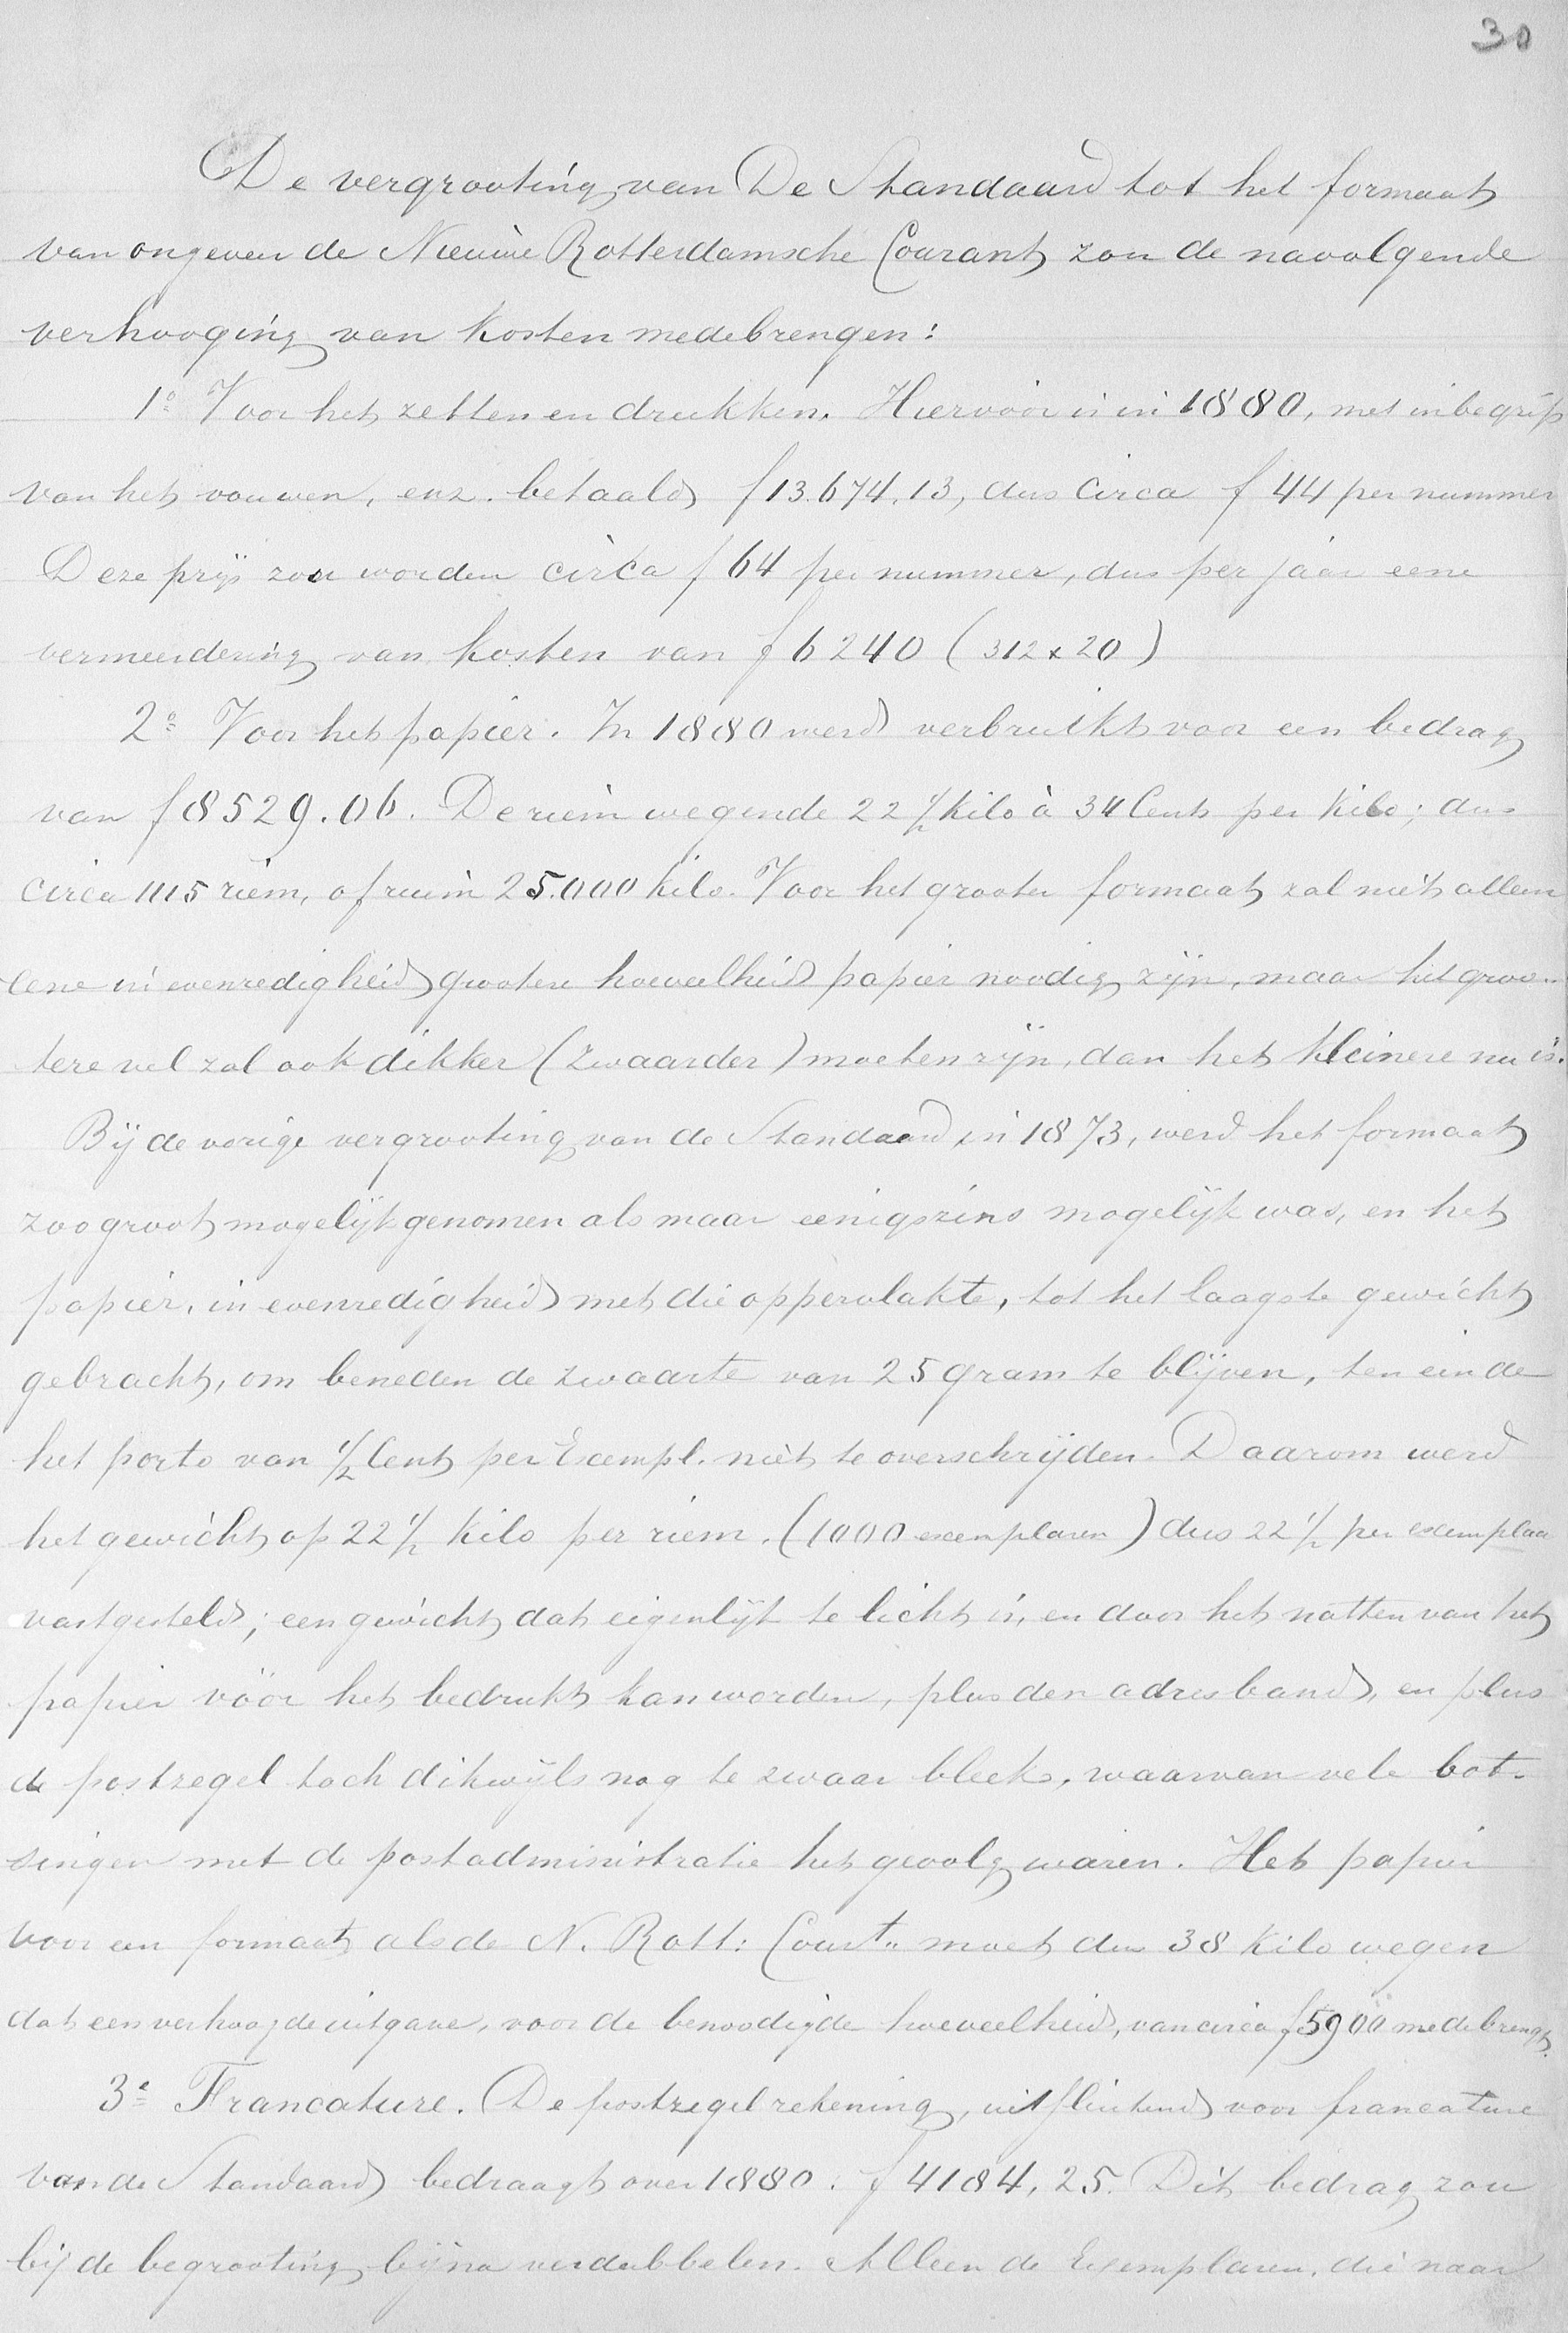 30
De vergrooting van De Standaard tot het formaat
van ongeveer de Nieuwe Rotterdamsche Courant zou de navolgende
verhooging van kosten medebrengen:
1º Voor het zetten en drukken. Hiervoor is in 1880, met inbegrip
van het vouwen, enz. betaald f 13.674.13, dus circa f 44 per nummer
Deze prijs zou worden circa f 64 per nummer, dus per jaar eene
vermeerdering van kosten van f 6240 (312 x 20)
2º Voor het papier. In 1880 werd verbruikt voor een bedrag
van f 8529.06. De riem wegende 22 1/2 kilo à 34 Cents per kilo; dus
circa 1115 riem, of ruim 25.000 kilo. Voor het grooter formaat zal niet alleen
eene in evenredigheid grootere hoeveelheid papier noodig zijn, maar het groo-
tere vel zal ook dikker (zwaarder) moeten zijn, dan het kleinere nu is.
Bij de vorige vergrooting van de Standaard in 1873, werd het formaat
zoo groot mogelijk genomen als maar eenigszins mogelijk was, en het
papier, in evenredigheid met die oppervlakte, tot het laagste gewicht
gebracht, om beneden de zwaarte van 25 gram te blijven, ten einde
het porto van 1/2 Cent per Exempl. niet te overschrijden. Daarom werd
het gewicht op 22 1/2 kilo per riem. (1000 exemplaren) dus 22 1/2 per exemplaar
vastgesteld; een gewicht dat eigenlijk te licht is, en door het natten van het
papier vóór het bedrukt kan worden, plus den adresband, en plus
de postzegel toch dikwijls nog te zwaar bleek, waarvan vele bot-
singen met de postadministratie het gevolg waren. Het papier
voor een formaat als de N. Rott: Court. moet dus 38 kilo wegen
dat een verhoogde uitgave, voor de benoodigde hoeveelheid, van circa f 5900 medebrengt.
3e Francature. De postzegelrekening, uitsluitend voor francature
van de Standaard bedraagt over 1880. f 4184,25. Dit bedrag zou
bij de begrooting bijna verdubbelen. Alleen de Exemplaren, die naar